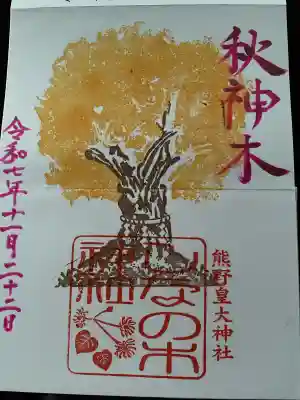 秋神木
しなの木
熊野皇大神社
令和七年十一月二十二日